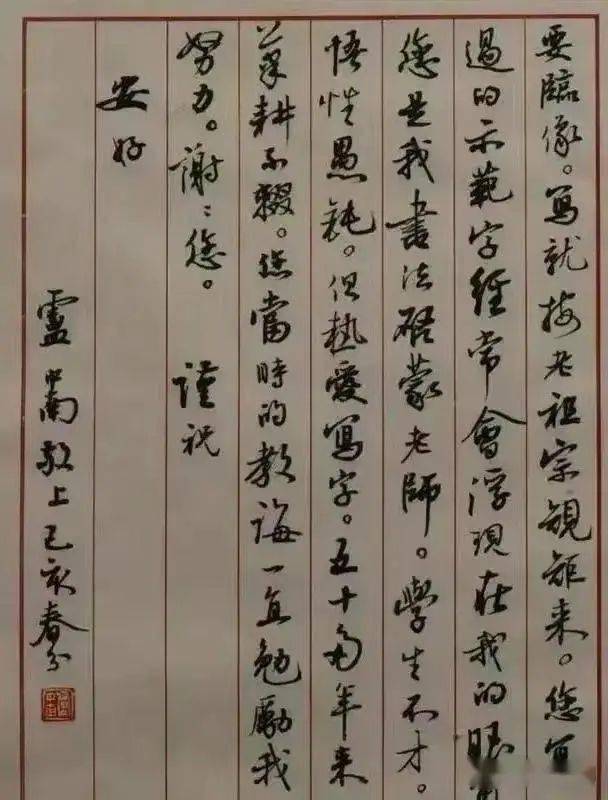 要臨像。寫就按老祖宗規矩来。您寫
過的示範字經常會浮現在我的眼前
您是我書法啓蒙老師。學生不才。
悟性愚鈍。但热愛寫字。五十多年来
筆耕不輟。您當時的教誨一直勉勵我
努力。謝:您。 謹祝
安好
盧中南敬上己亥春分